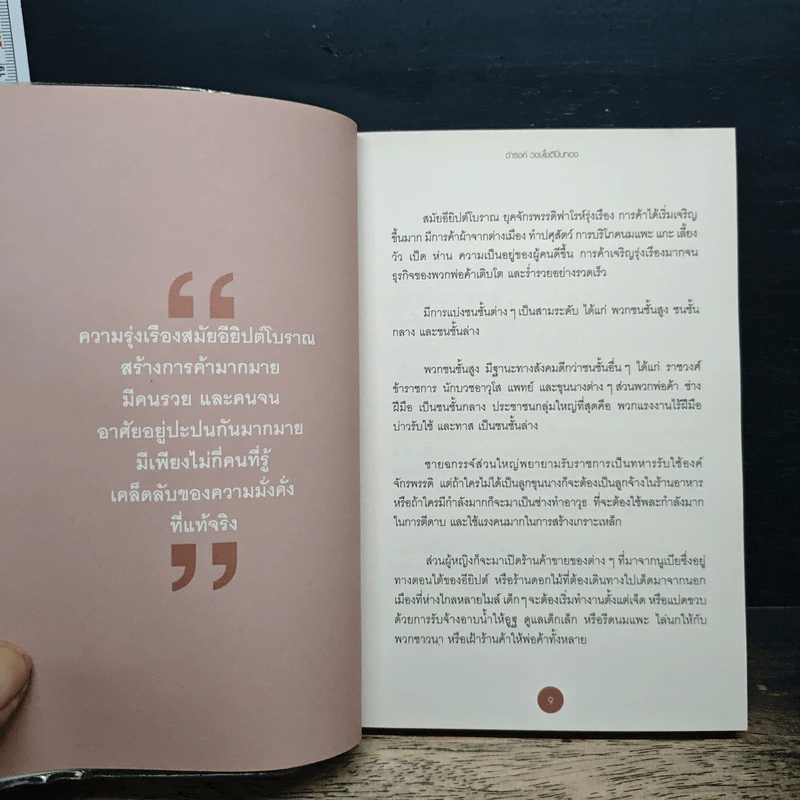 ความรุ่งเรืองสมัยอียิปต์โบราณ
สร้างการค้ามากมาย
มีคนรวย และคนจน
อาศัยอยู่ปะปนกันมากมาย
มีเพียงไม่กี่คนที่รู้
เคล็ดลับของความมั่งคั่ง
ที่แท้จริง
ดำรงค์ วงษ์โชติปิ่นทอง
สมัยอียิปต์โบราณ ยุคจักรพรรดิฟาโรห์รุ่งเรือง การค้าได้เริ่มเจริญ
ขึ้นมาก มีการค้าผ้าจากต่างเมือง ทำปศุสัตว์ การบริโภคนมแพะ แกะ เลี้ยง
วัว เป็ด ห่าน ความเป็นอยู่ของผู้คนดีขึ้น การค้าเจริญรุ่งเรืองมากจน
ธุรกิจของพวกพ่อค้าเติบโต และร่ำรวยอย่างรวดเร็ว
มีการแบ่งชนชั้นต่าง ๆ เป็นสามระดับ ได้แก่ พวกชนชั้นสูง ชนชั้น
กลาง และชนชั้นล่าง
พวกชนชั้นสูง มีฐานะทางสังคมดีกว่าชนชั้นอื่น ๆ ได้แก่ ราชวงศ์
ข้าราชการ นักบวชอาวุโส แพทย์ และขุนนางต่าง ๆ ส่วนพวกพ่อค้า ช่าง
ฝีมือ เป็นชนชั้นกลาง ประชาชนกลุ่มใหญ่ที่สุดคือ พวกแรงงานไร้ฝีมือ
บ่าวรับใช้ และทาส เป็นชนชั้นล่าง
ชายฉกรรจ์ส่วนใหญ่พยายามรับราชการเป็นทหารรับใช้องค์
จักรพรรดิ แต่ถ้าใครไม่ได้เป็นลูกขุนนางก็จะต้องเป็นลูกจ้างในร้านอาหาร
หรือถ้าใครมีกำลังมากก็จะมาเป็นช่างทำอาวุธ ที่จะต้องใช้พละกำลังมาก
ในการตีดาบ และใช้แรงคนมากในการสร้างเกราะเหล็ก
ส่วนผู้หญิงก็จะมาเปิดร้านค้าขายของต่าง ๆ ที่มาจากนูเบียซึ่งอยู่
ทางตอนใต้ของอียิปต์ หรือร้านดอกไม้ที่ต้องเดินทางไปเด็ดมาจากนอก
เมืองที่ห่างไกลหลายไมล์ เด็ก ๆ จะต้องเริ่มทำงานตั้งแต่เจ็ด หรือแปดขวบ
ด้วยการรับจ้างอาบน้ำให้อูฐ ดูแลเด็กเล็ก หรือรีดนมแพะ ไล่นกให้กับ
พวกชาวนา หรือเฝ้าร้านค้าให้พ่อค้าทั้งหลาย
๙